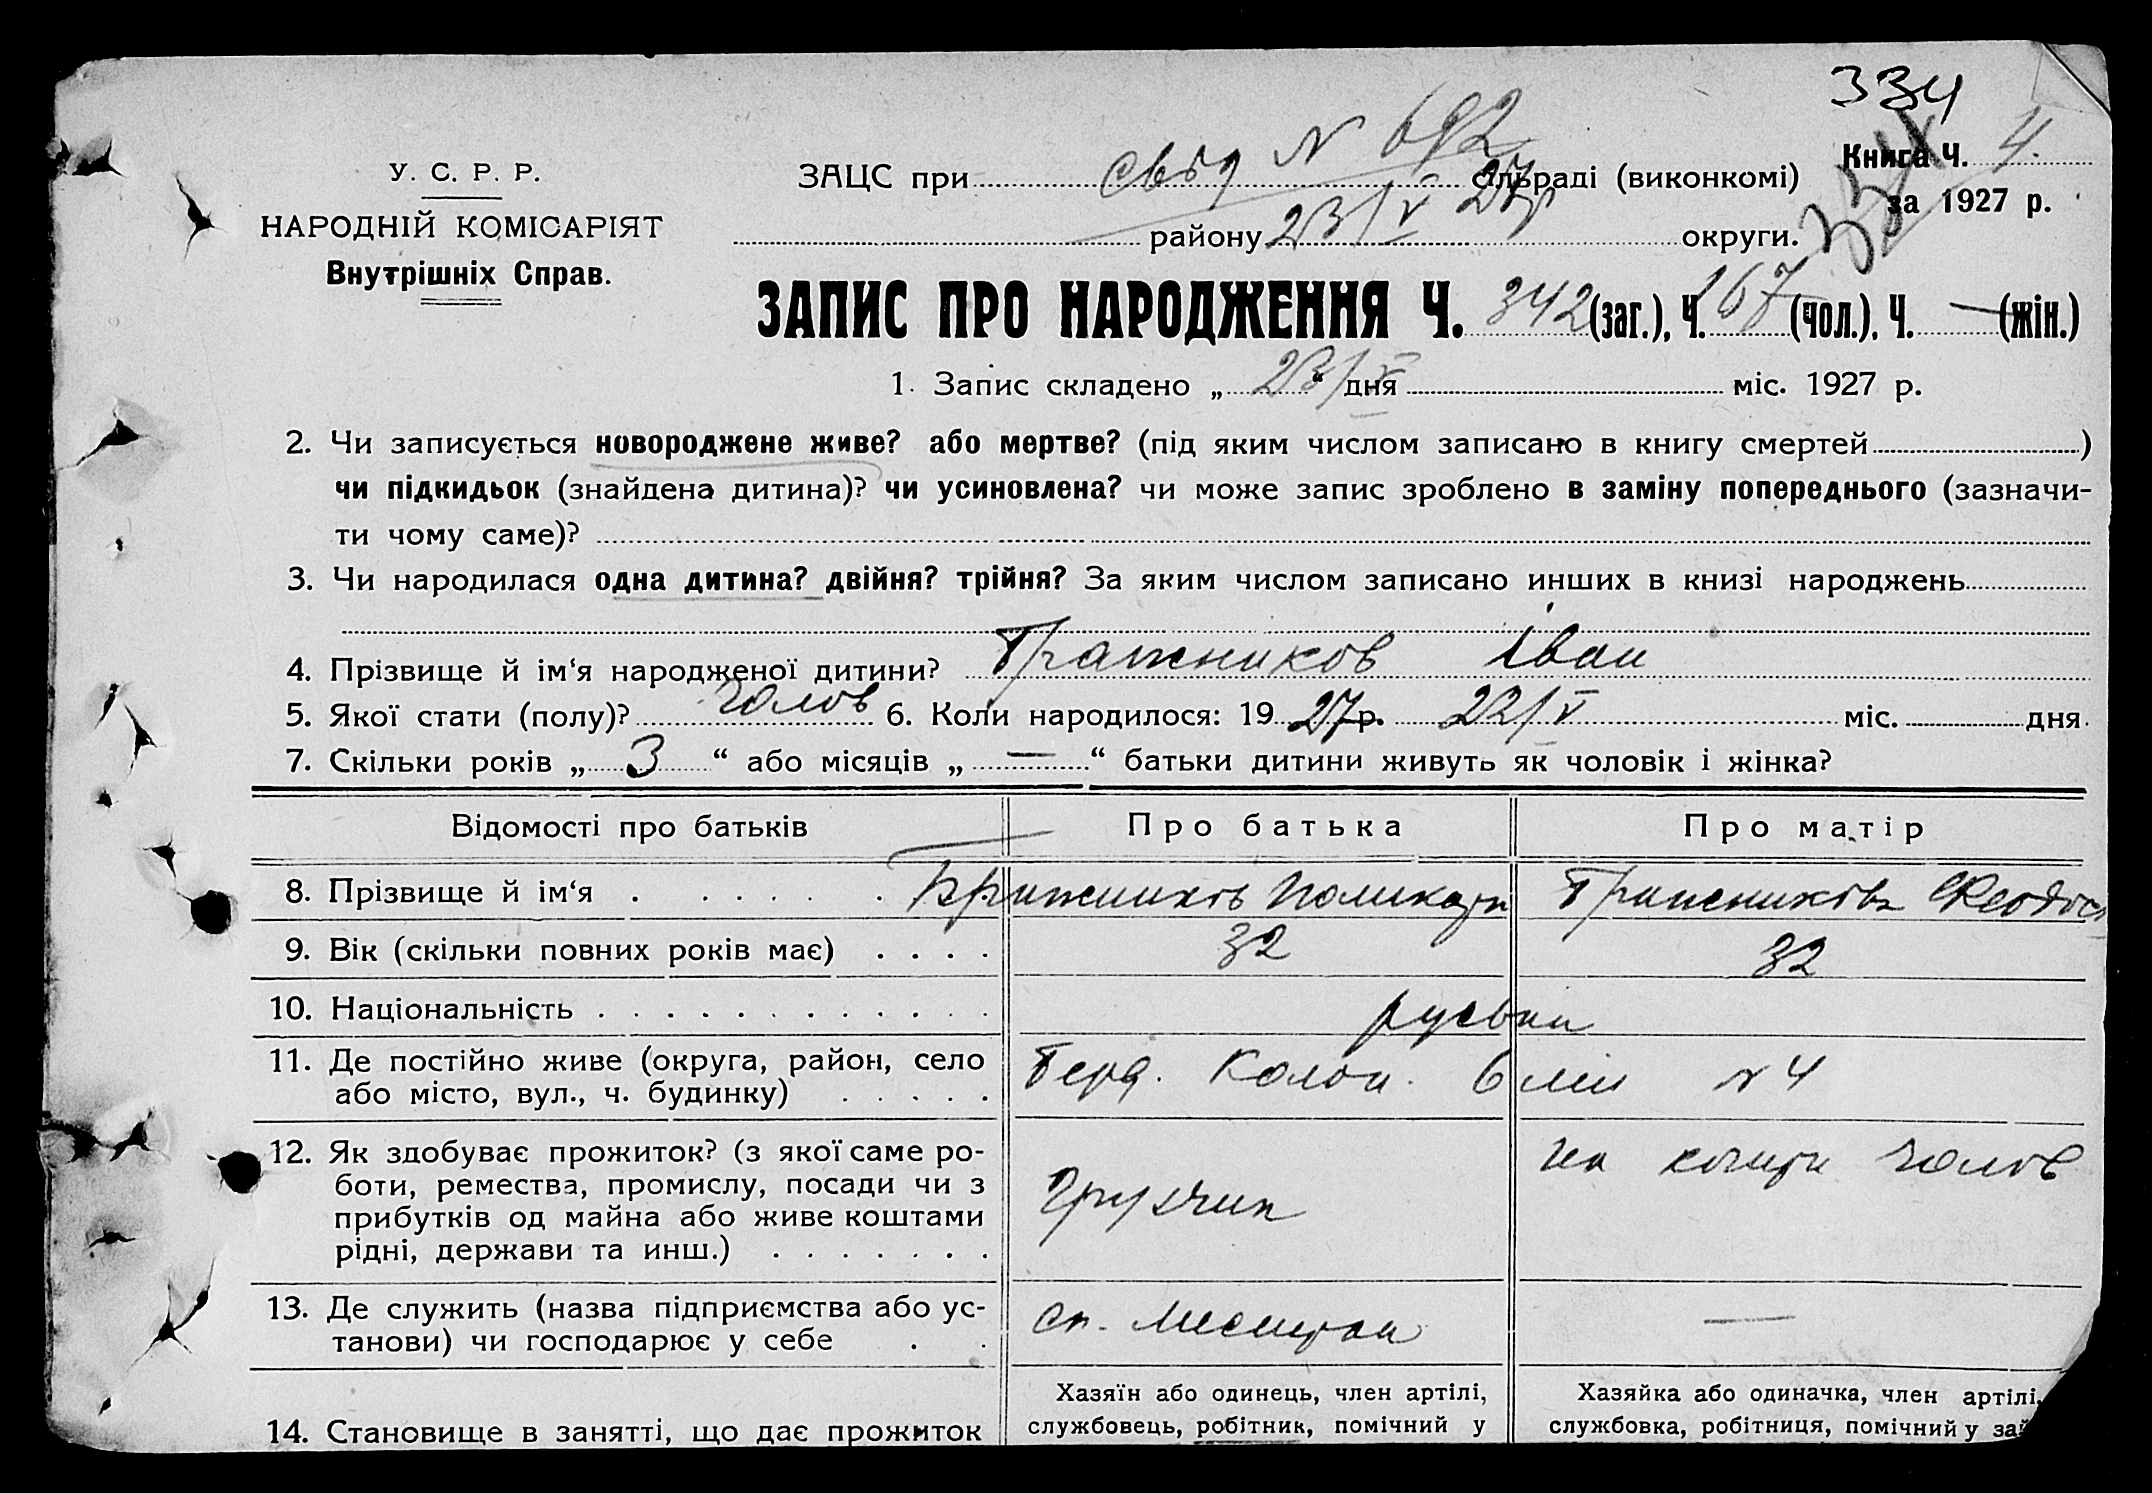 334
У. С. Р. Р.
НАРОДНІЙ КОМІСАРІЯТ
Внутрішніх Справ.
N 692
ЗАЦС при свід сільраді (виконкомі)
Книга Ч. 4.
за 1927 р.
району 23/V 27р округи.
ЗАПИС ПРО НАРОДЖЕННЯ Ч. 342 (заг.), Ч. 167 (чол.), Ч. — (жін.)
1. Запис складено „ 23/V “ дня міс. 1927 р.
2. Чи записується новороджене живе? або мертве? (під яким числом записано в книгу смертей )
чи підкидьок (знайдена дитина)? чи усиновлена? чи може запис зроблено в заміну попереднього (зазначи-
ти чому саме)?
3. Чи народилася одна дитина? двійня? трійня? За яким числом записано инших в книзі народжень
4. Прізвище й ім‘я народженої дитини? Бражников Іван
5. Якої стати (полу)? чолов 6. Коли народилося: 19 27 р. 22/V міс. дня
7. Скільки років „ 3 “ або місяців „ — “ батьки дитини живуть як чоловік і жінка?
Відомості про батьків Про батька Про матір
8. Прізвище й ім‘я Бражников Поликарп Бражникова Феодос
9. Вік (скільки повних років має) 32 32
10. Національність руськи
11. Де постійно живе (округа, район, село
або місто, вул., ч. будинку) Берд. Колон. 6 лін N 4
12. Як здобуває прожиток? (з якої саме ро-
боти, ремества, промислу, посади чи з
прибутків од майна або живе коштами
рідні, держави та инш.) грузчик на кошти чолов
13. Де служить (назва підприємства або ус-
танови) чи господарює у себе —
14. Становище в занятті, що дає прожиток
Хазяїн або одинець, член артілі,
службовець, робітник, помічний у
Хазяйка або одиначка, член артілі,
службовка, робітниця, помічний у зай